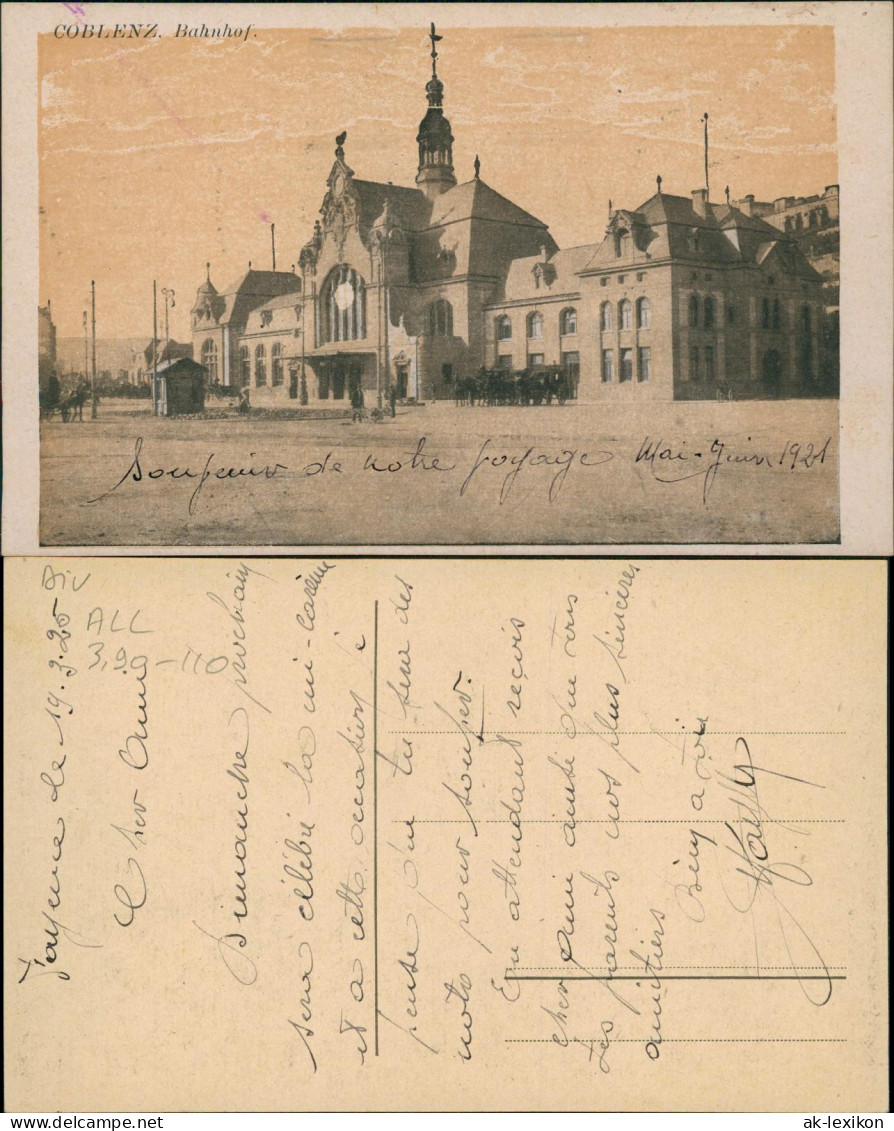 COBLENZ. Bahnhof.
Souvenir de notre voyage Mai-Juin 1921
Div
ALL
3,90-110
le 19.3.25
Cher Ami
Dimanche prochain
sera célébré la mi-carême
et a cette occasion je
pense que tu sera des
notres pour souper.
En attendant reçois
cher ami ainsi que tes
parents nos plus sincères
amitiés
Bien a toi
ak-lexikon